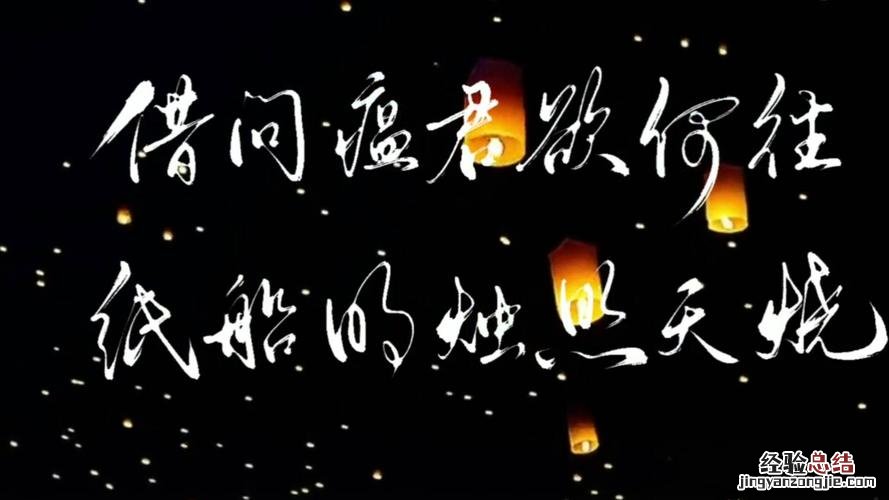 借问瘟君欲何往
纸船明烛照天烧
经验总结
jingyanzongjie.com